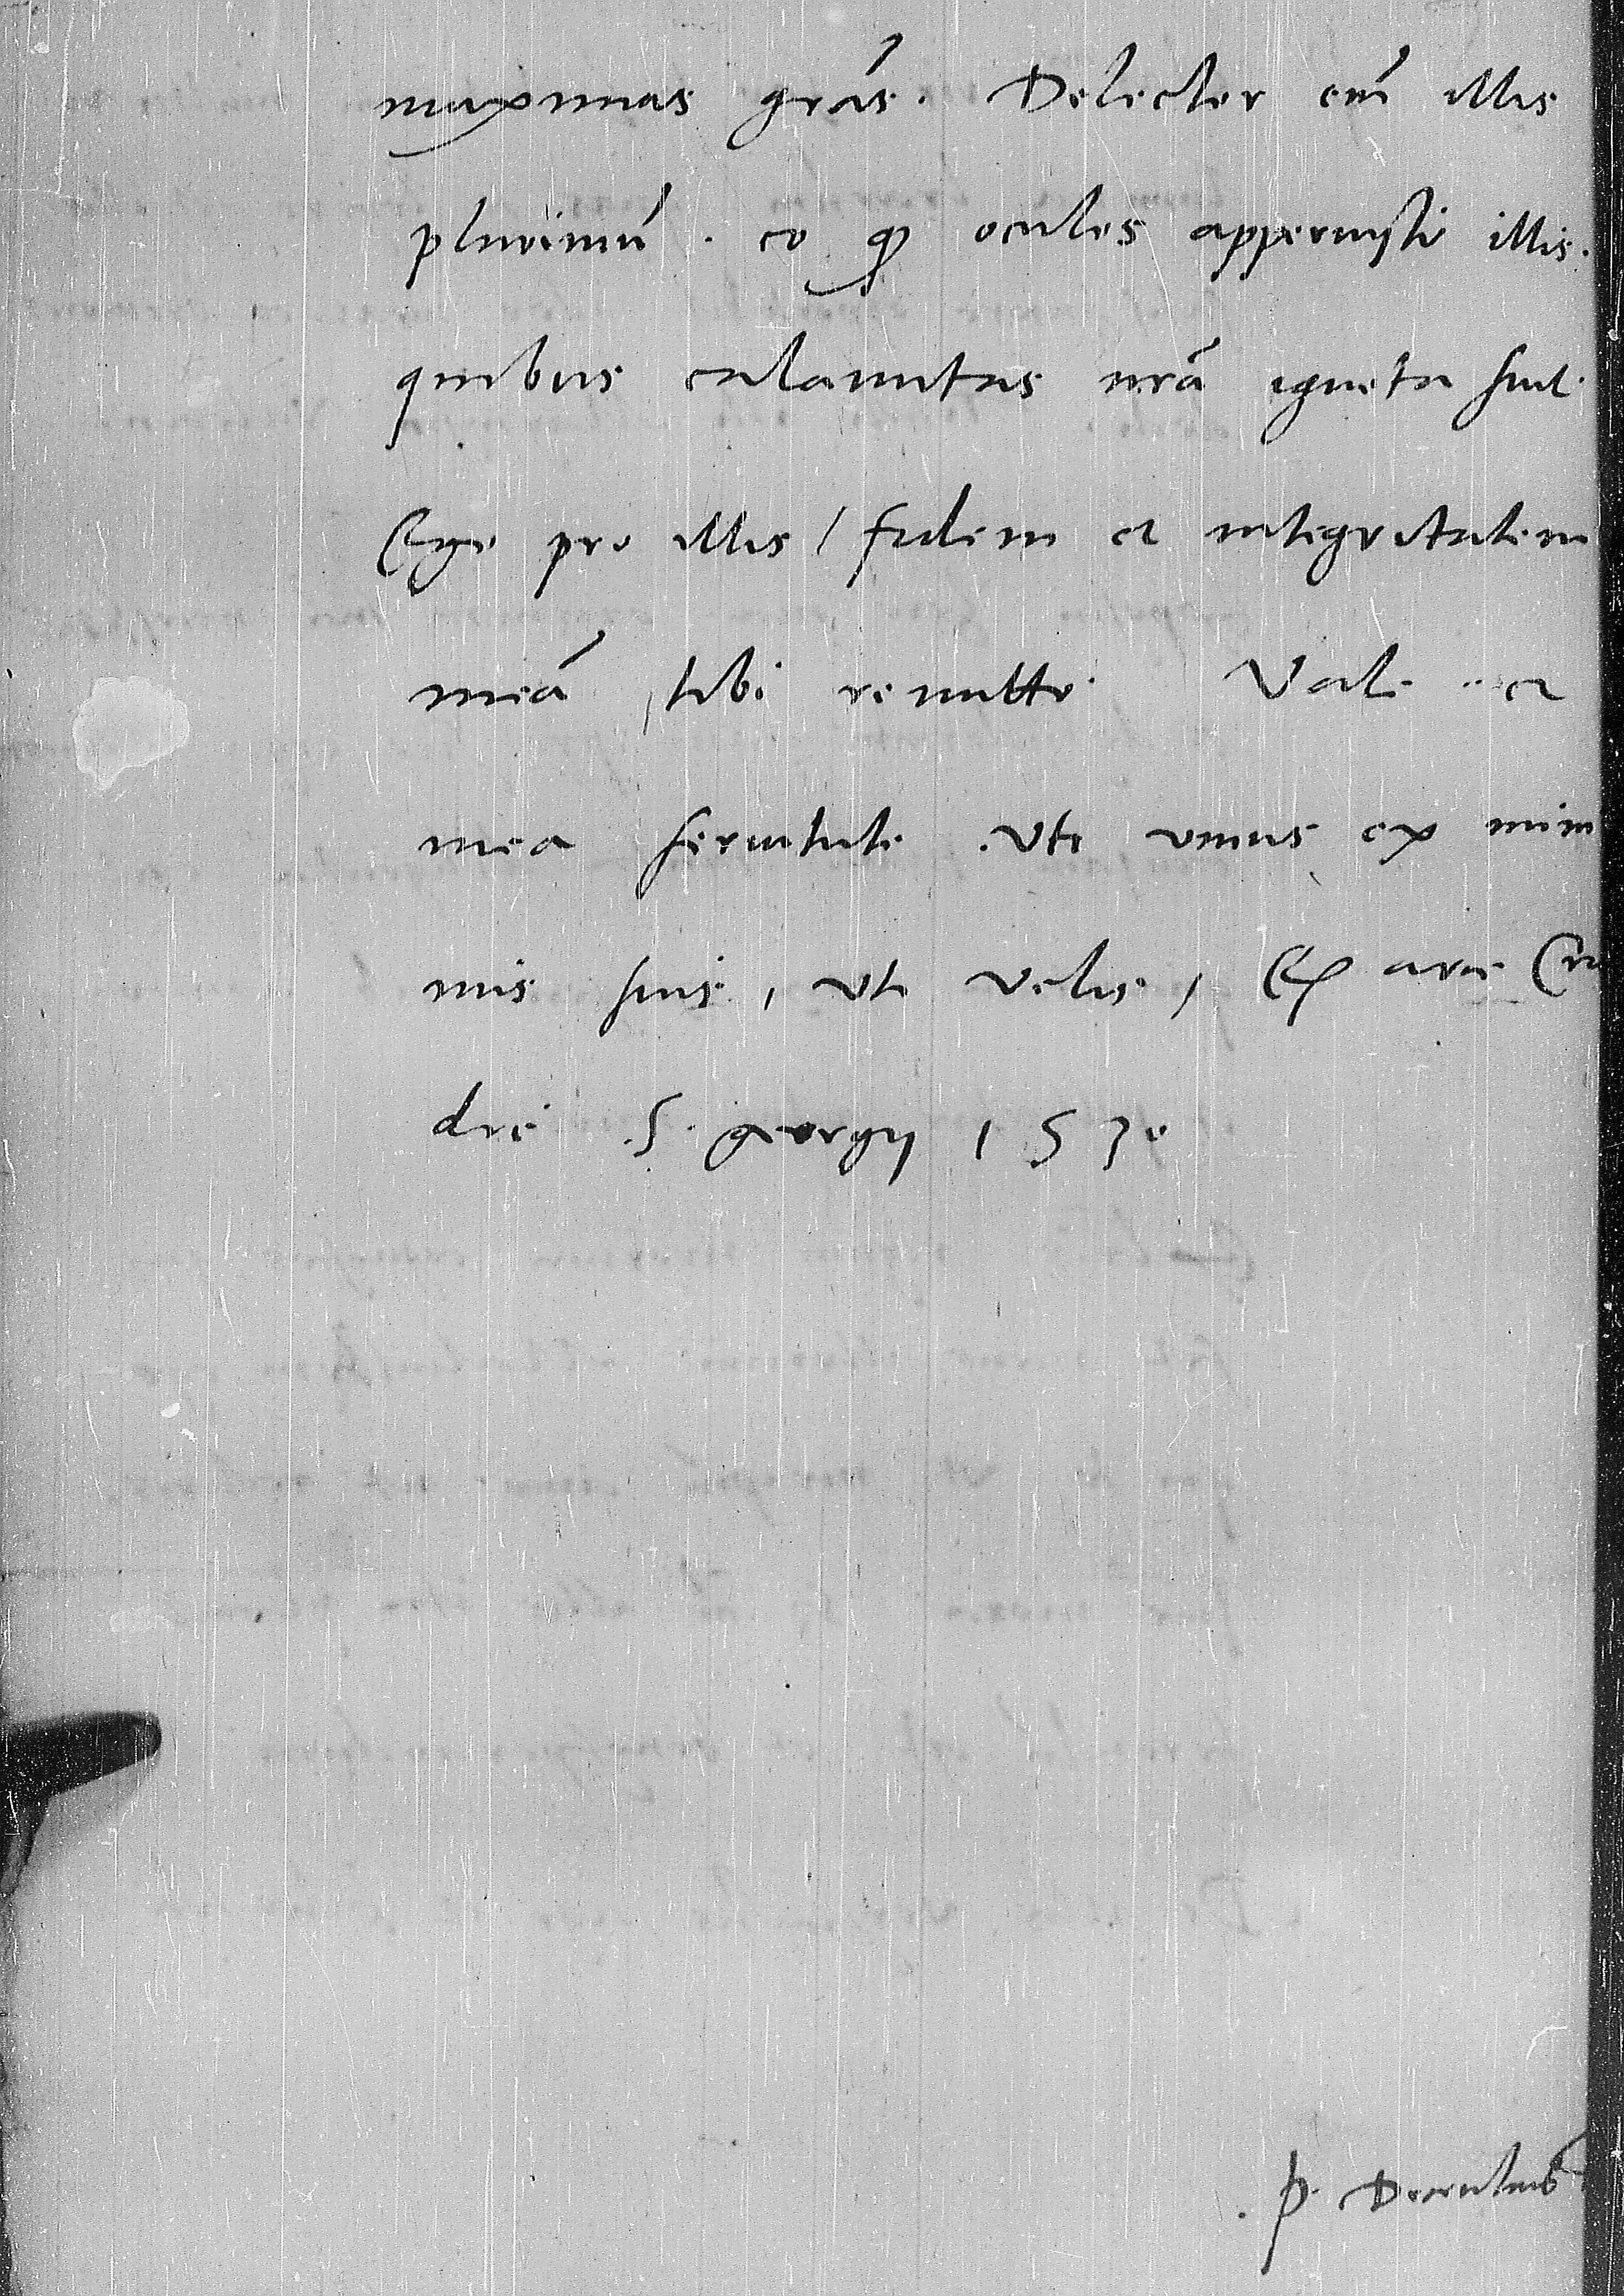 maximas grãs. Delector em̃ illis
plurimũ. eo ꝙ oculos apperuisti illis.
quibus calamitas nr̃a ignota fuit.
Ego pro illis / fidem et integritatem
meã / tibi remitto. Vale et
mea seruitute. Vti unius ex mini
mis suis, uti velis, Ex arce
die S. Georgy 1530